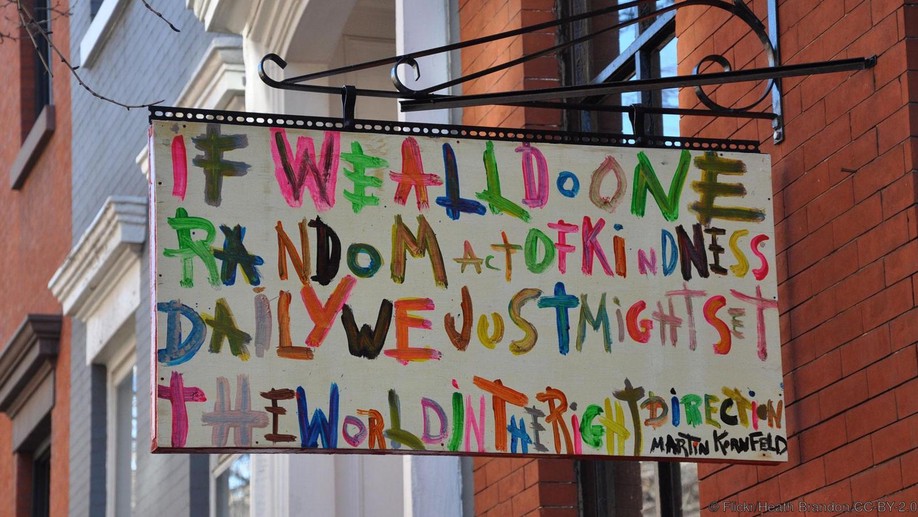 IF WE ALL Do ONE
RANDOM AcT OF KiNDNESS
DAiLY WE JUST MiGHT SET
THE WORLD iN THE RiGHT DiRECTiON
MARTiN KORNFELD
© Flickr Heath Brandon/CC-BY-2.0